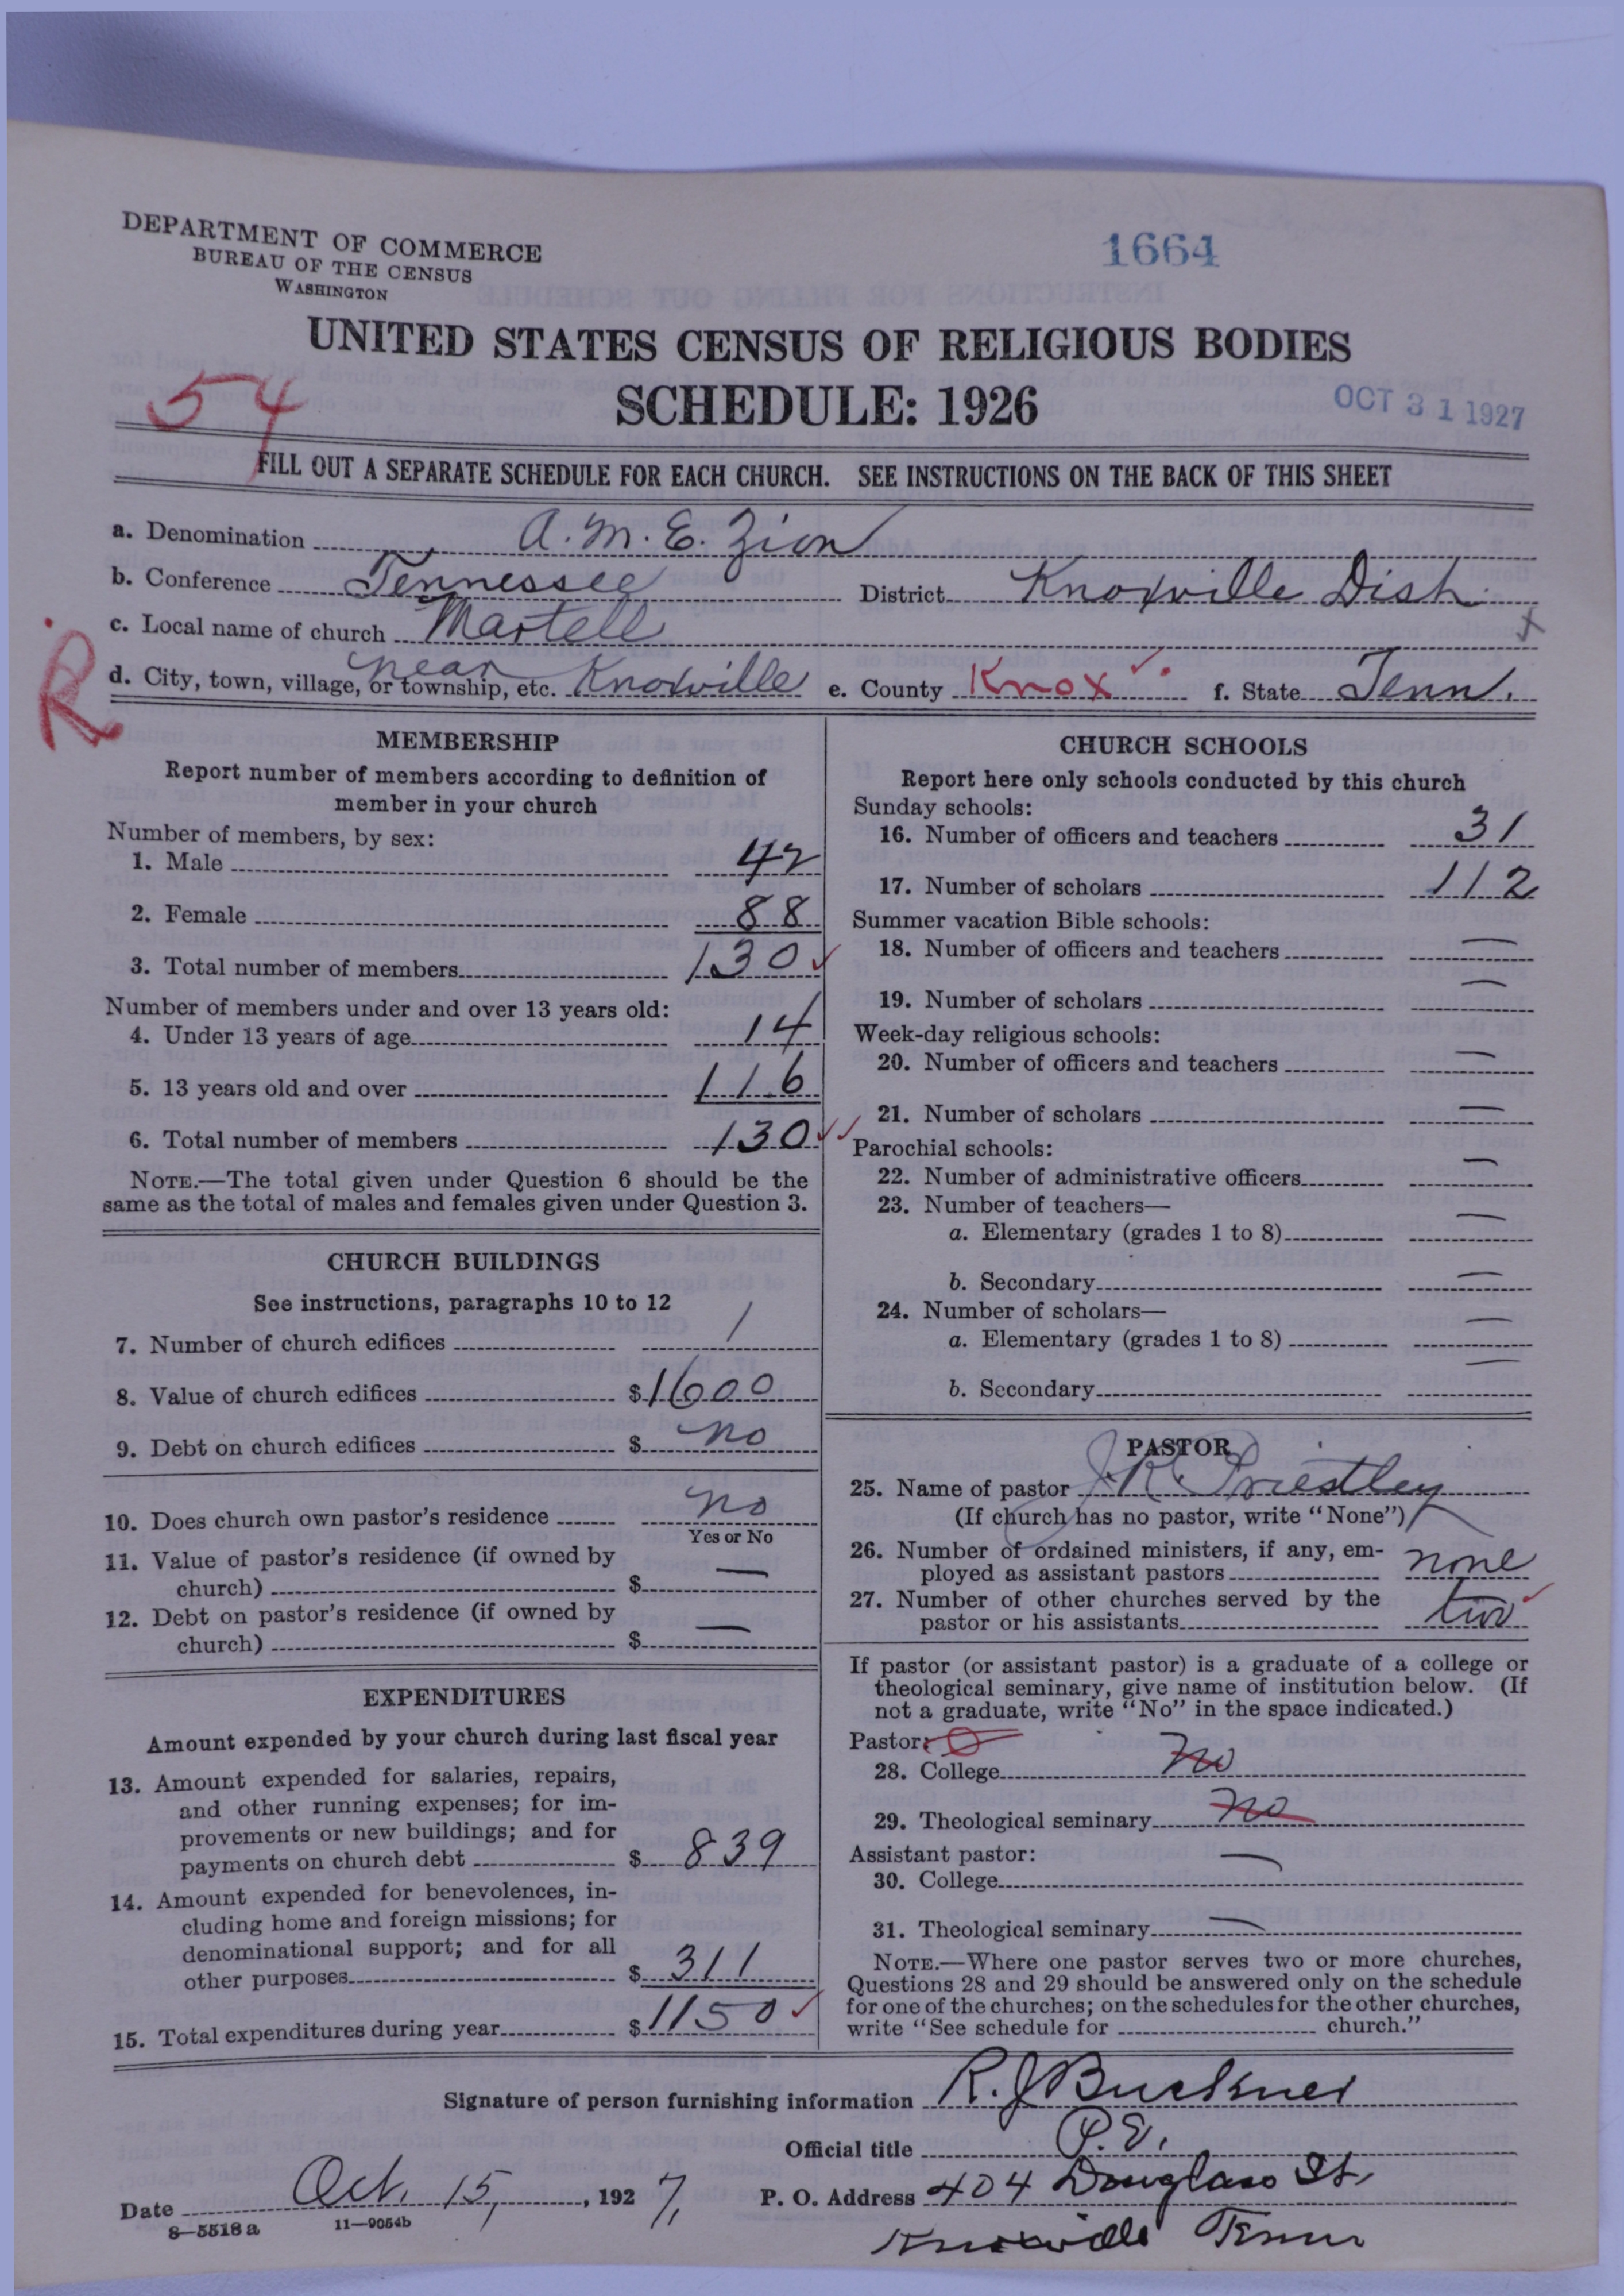 DEPARTMENT OF COMMERCE
BUREAU OF THE CENSUS
WASHINGTON
1664
UNITED STATES CENSUS OF RELIGIOUS BODIES
SCHEDULE: 1926
54
OCT 31 1927
FILL OUT A SEPARATE SCHEDULE FOR EACH CHURCH. SEE INSTRUCTIONS ON THE BACK OF THIS SHEET
a. Denomination A.M.E. Zion
b. Conference Tennessee District Knoxville Dist.
c. Local name of church Martell x
R
d. City, town, village, or township, etc. near Knoxville e. County Knox f. State Tenn.
MEMBERSHIP
Report number of members according to definition of
member in your church
Number of members, by sex:
1. Male 42
2. Female 88
3. Total number of members 130
Number of members under and over 13 years old:
4. Under 13 years of age 14
5. 13 years old and over 116
6. Total number of members 130
NOTE.—The total given under Question 6 should be the
same as the total of males and females given under Question 3.
CHURCH BUILDINGS
See instructions, paragraphs 10 to 12
7. Number of church edifices 1
8. Value of church edifices $1600
9. Debt on church edifices $ no
10. Does church own pastor's residence no
Yes or No
11. Value of pastor's residence (if owned by
church) $ —
12. Debt on pastor's residence (if owned by
church) $ —
EXPENDITURES
Amount expended by your church during last fiscal year
13. Amount expended for salaries, repairs,
and other running expenses; for im-
provements or new buildings; and for
payments on church debt $ 839
14. Amount expended for benevolences, in-
cluding home and foreign missions; for
denominational support; and for all
other purposes $ 311
15. Total expenditures during year $1150
CHURCH SCHOOLS
Report here only schools conducted by this church
Sunday schools:
16. Number of officers and teachers 31
17. Number of scholars 112
Summer vacation Bible schools:
18. Number of officers and teachers —
19. Number of scholars —
Week-day religious schools:
20. Number of officers and teachers —
21. Number of scholars —
Parochial schools:
22. Number of administrative officers —
23. Number of teachers—
a. Elementary (grades 1 to 8) —
b. Secondary —
24. Number of scholars—
a. Elementary (grades 1 to 8) —
b. Secondary —
PASTOR
25. Name of pastor J.R. Priestley
(If church has no pastor, write "None")
26. Number of ordained ministers, if any, em-
ployed as assistant pastors none
27. Number of other churches served by the
pastor or his assistants two
If pastor (or assistant pastor) is a graduate of a college or
theological seminary, give name of institution below. (If
not a graduate, write "No" in the space indicated.)
Pastor: 0
28. College no
29. Theological seminary no
Assistant pastor:
30. College —
31. Theological seminary —
NOTE.—Where one pastor serves two or more churches,
Questions 28 and 29 should be answered only on the schedule
for one of the churches; on the schedules for the other churches,
write "See schedule for church."
Signature of person furnishing information R. J. Buckner
Official title P.E.
Date Oct. 15, 1927, P. O. Address 404 Douglass St.
Knoxville Tenn
8—5518 a 11—9054b